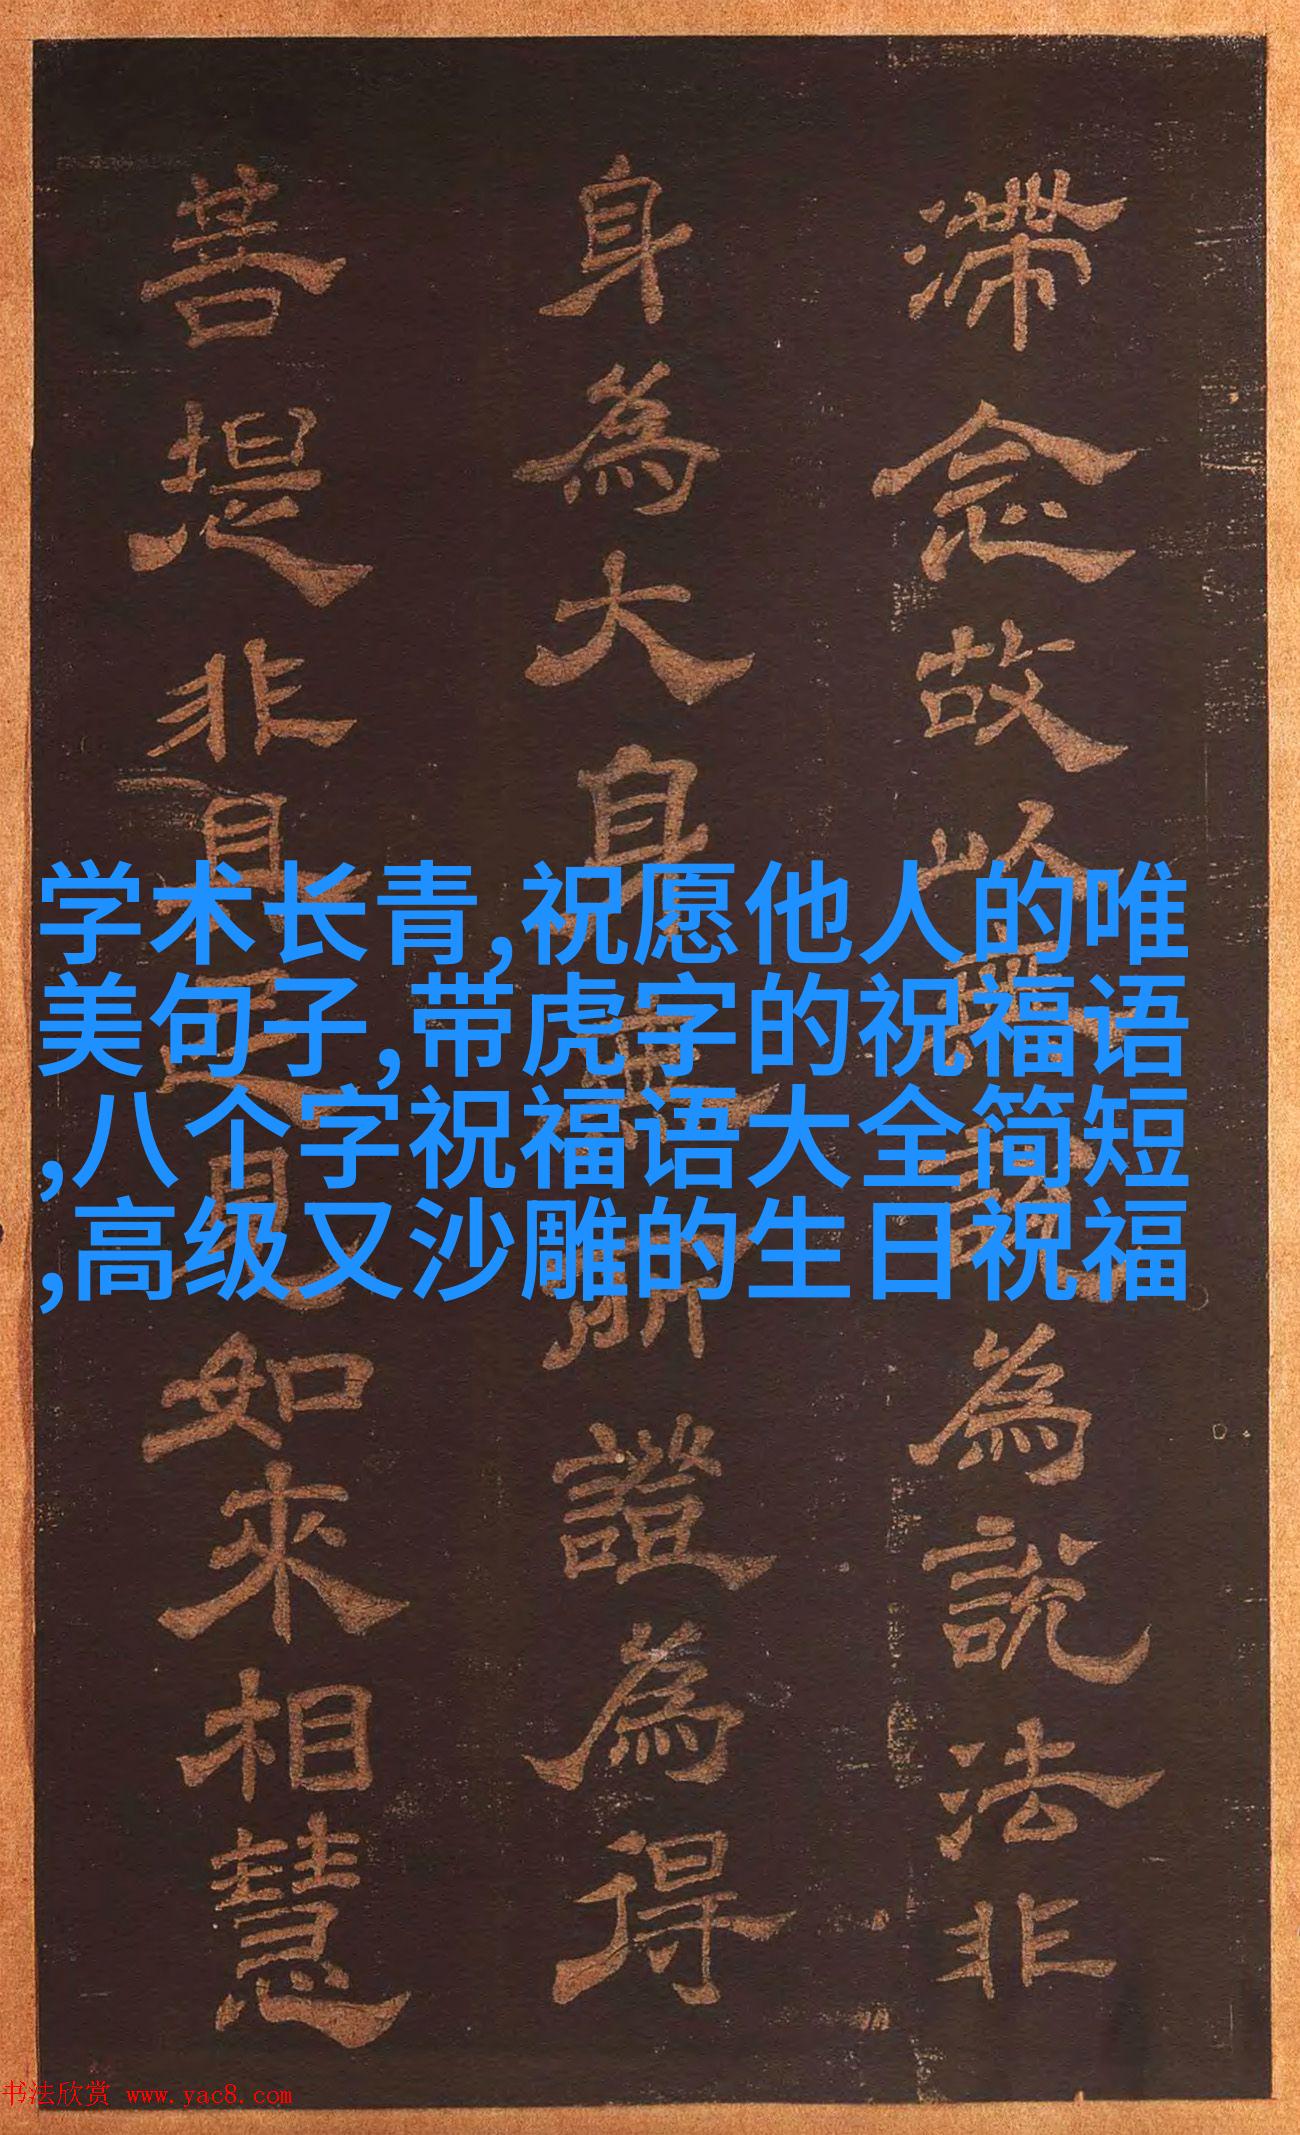 滯念故以無說為說法非
身為大身無所證為得
菩提非具足見如來相慧
学术长青,祝愿他人的唯
美句子,带虎字的祝福语
,八个字祝福语大全简短
,高级又沙雕的生日祝福
书法欣赏 www.yac8.com